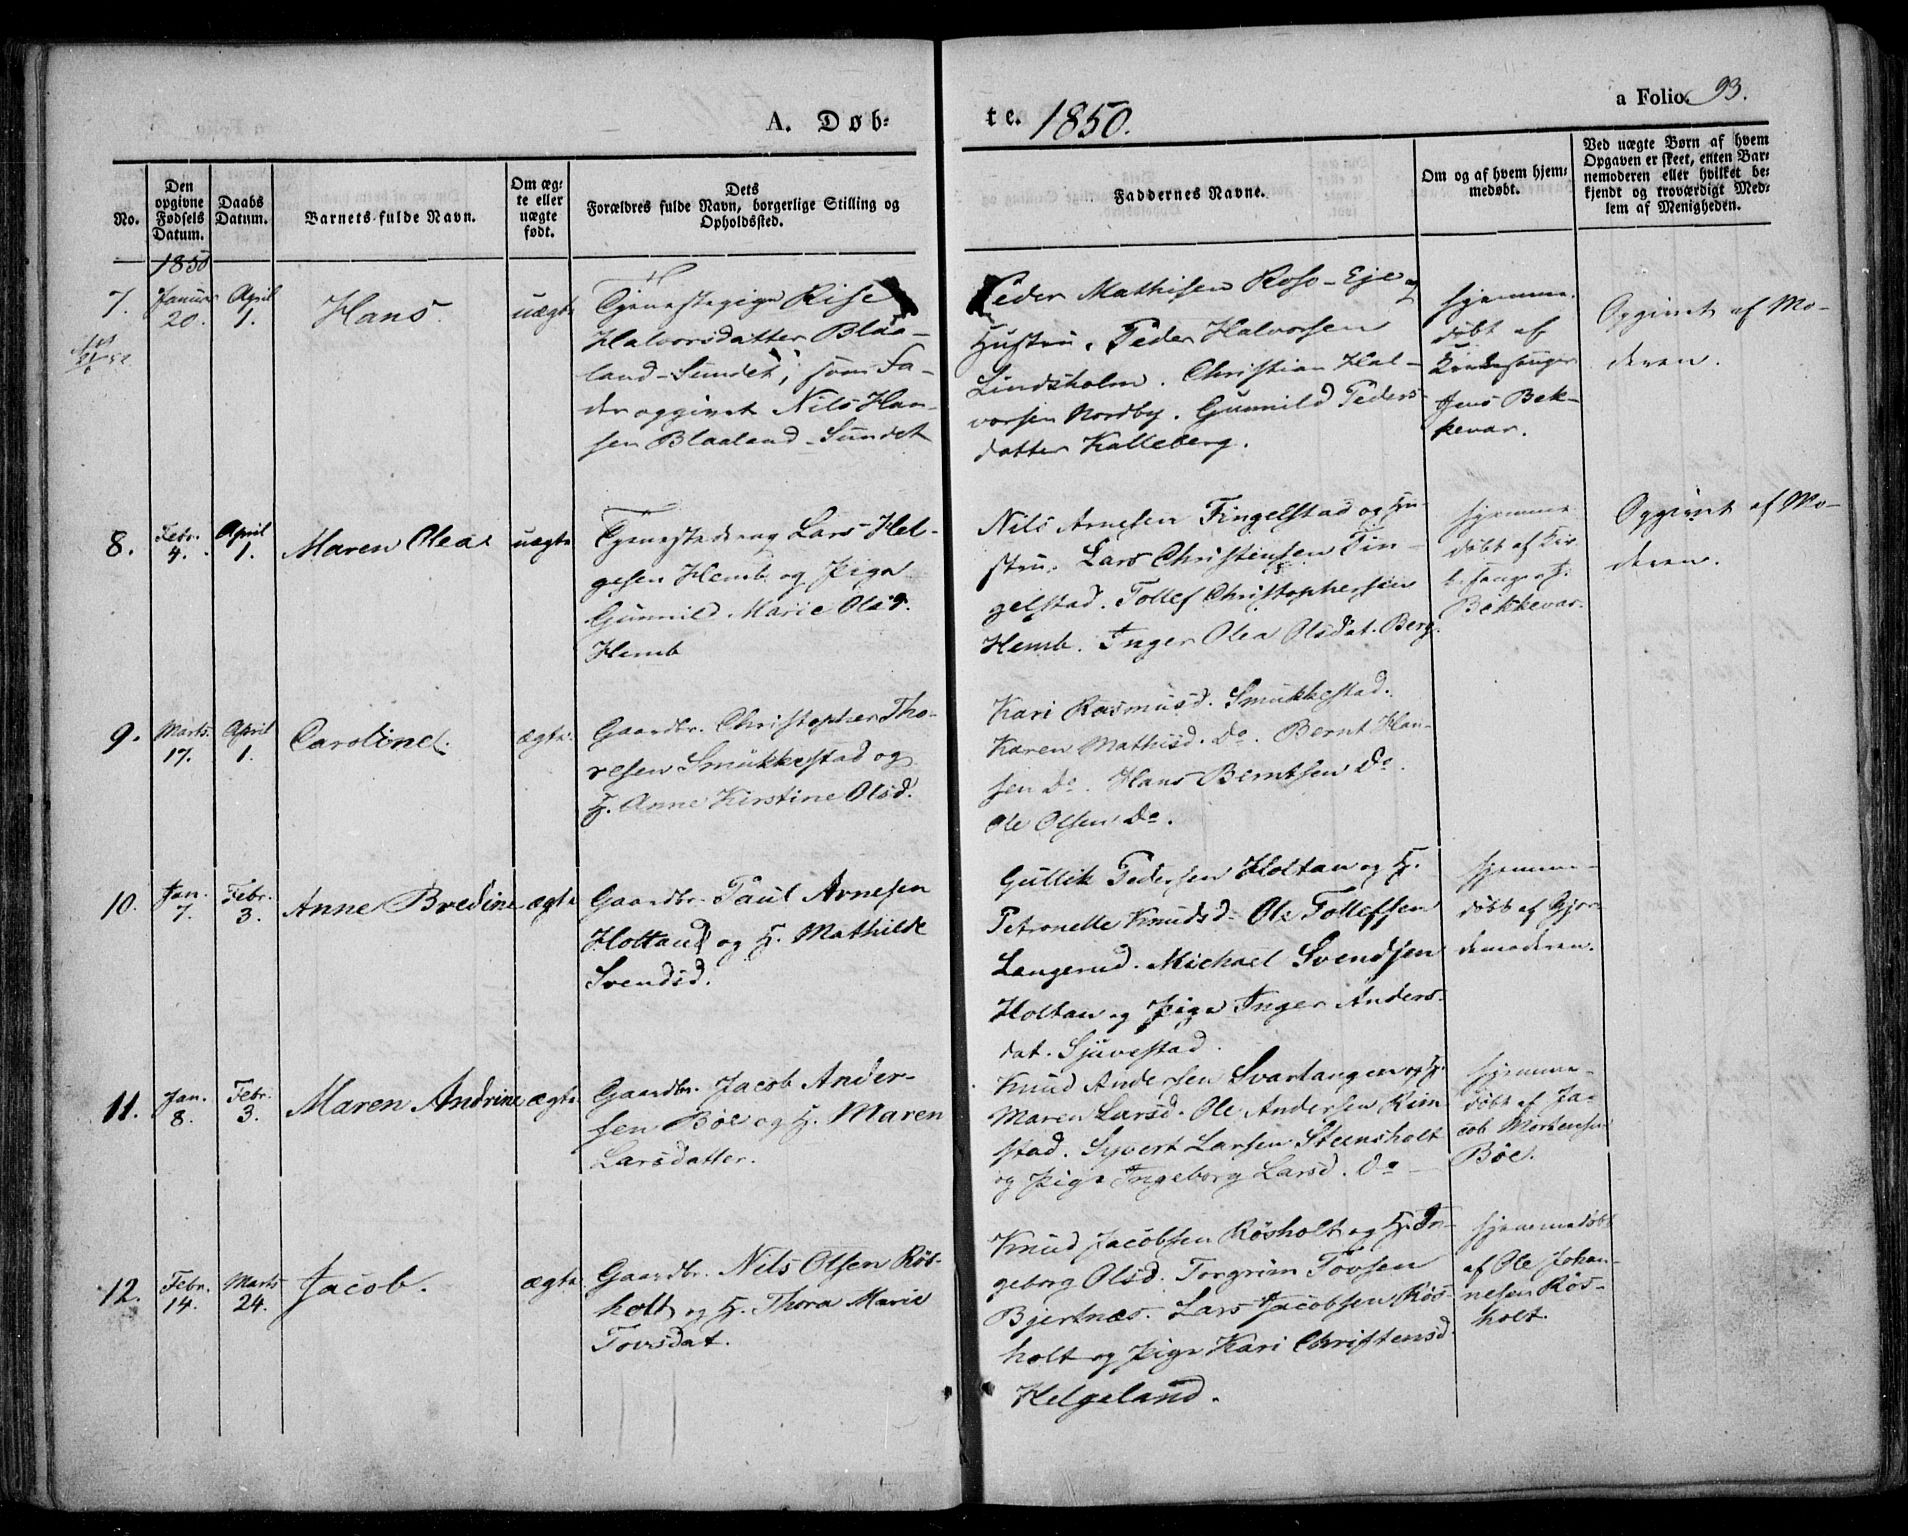 A. Døb-
te. 1850.
a Folio. 93.
No.
Den
opgivne
Fødsels
Datum.
Daabs
Datum.
Barnets fulde Navn.
Om æg-
te eller
uægte
født.
Dets
Forældres fulde Navn, borgerlige Stilling og
Opholdssted.
Faddernes Navne.
Om og af hvem hjem-
medøbt.
Ved uægte Børn af hvem
Opgaven er skeet, enten Bar-
nemoderen eller hvilket be-
kjendt og troværdigt Med-
lem af Menigheden.
1850
7.
Januar
20.
April
1.
Hans.
uægte
Tjenestepige Rise
Halvorsdatter Blaa-
land-Sundet; som Fa-
der opgivet Nils Han-
sen Blaaland-Sundet
Peder Mathisen Roso-Eje og
Hustru. Peder Halvorsen
Lindsholm. Christian Hal-
vorsen Nordby. Gunnild Peders-
datter Kalleberg.
hjemme-
døbt af
Kirkesanger
Jens Bek-
kevar.
Opgivet af Mo-
deren.
8.
Febr.
4.
April
1.
Maren Olea
uægte
Tjenestedreng Lars Hel-
gesen Hemb og Pige
Gunnild Marie Olsd.
Hemb
Nils Arnesen Fingelstad og Hu-
stru. Lars Christensen Fin-
gelstad. Tollef Christophersen
Hemb. Inger Olea Olsdat. Berg.
hjemme
døbt af Kir-
kesanger J.
Bekkevar.
Opgivet af Mo-
deren.
9.
Marts
17.
April
1.
Caroline.
ægte.
Gaardbr. Christopher Tho-
resen Smukkestad og
H. Anne Kirstine Olsd.
Kari Rasmusd. Smukkestad.
Karen Mathisd. Do. Bernt Han-
sen Do. Hans Berntsen Do.
Ole Olsen Do.
10.
Jan.
7.
Febr.
3.
Anne Bredine
ægte
Gaardbr. Paul Arnesen
Holtand og H. Mathilde
Svendsd.
Gullik Pedersen Holtan og H.
Petronelle Knudsd. Ole Tollefsen
Langerud. Michael Svendsen
Holtan og Pige Inger Anders-
dat. Sjuvestad.
hjemme-
døbt af Gjor-
demoderen.
11.
Jan.
8.
Febr.
3.
Maren Andrine
ægte
Gaardbr. Jacob Ander-
sen Böe og H. Maren
Larsdatter.
Knud Andersen Svartangen og H.
Maren Larsd. Ole Andersen Rim-
stad. Syvert Larsen Steensholt
og Pige Ingeborg Larsd. Do
hjemme-
døbt af Ja-
cob Mortensen
Böe.
12.
Febr.
14.
Marts
24.
Jacob.
ægte.
Gaardbr. Nils Olsen Rös-
holt og H. Thora Marie
Tovsdat.
Knud Jacobsen Rösholt og H. In-
geborg Olsd. Torgrim Tovsen
Bjertnæs. Lars Jacobsen Rös-
holt og Pige Kari Christensd.
Helgeland.
hjemmedøbt
af Ole Johan-
nesen Rös-
holt.